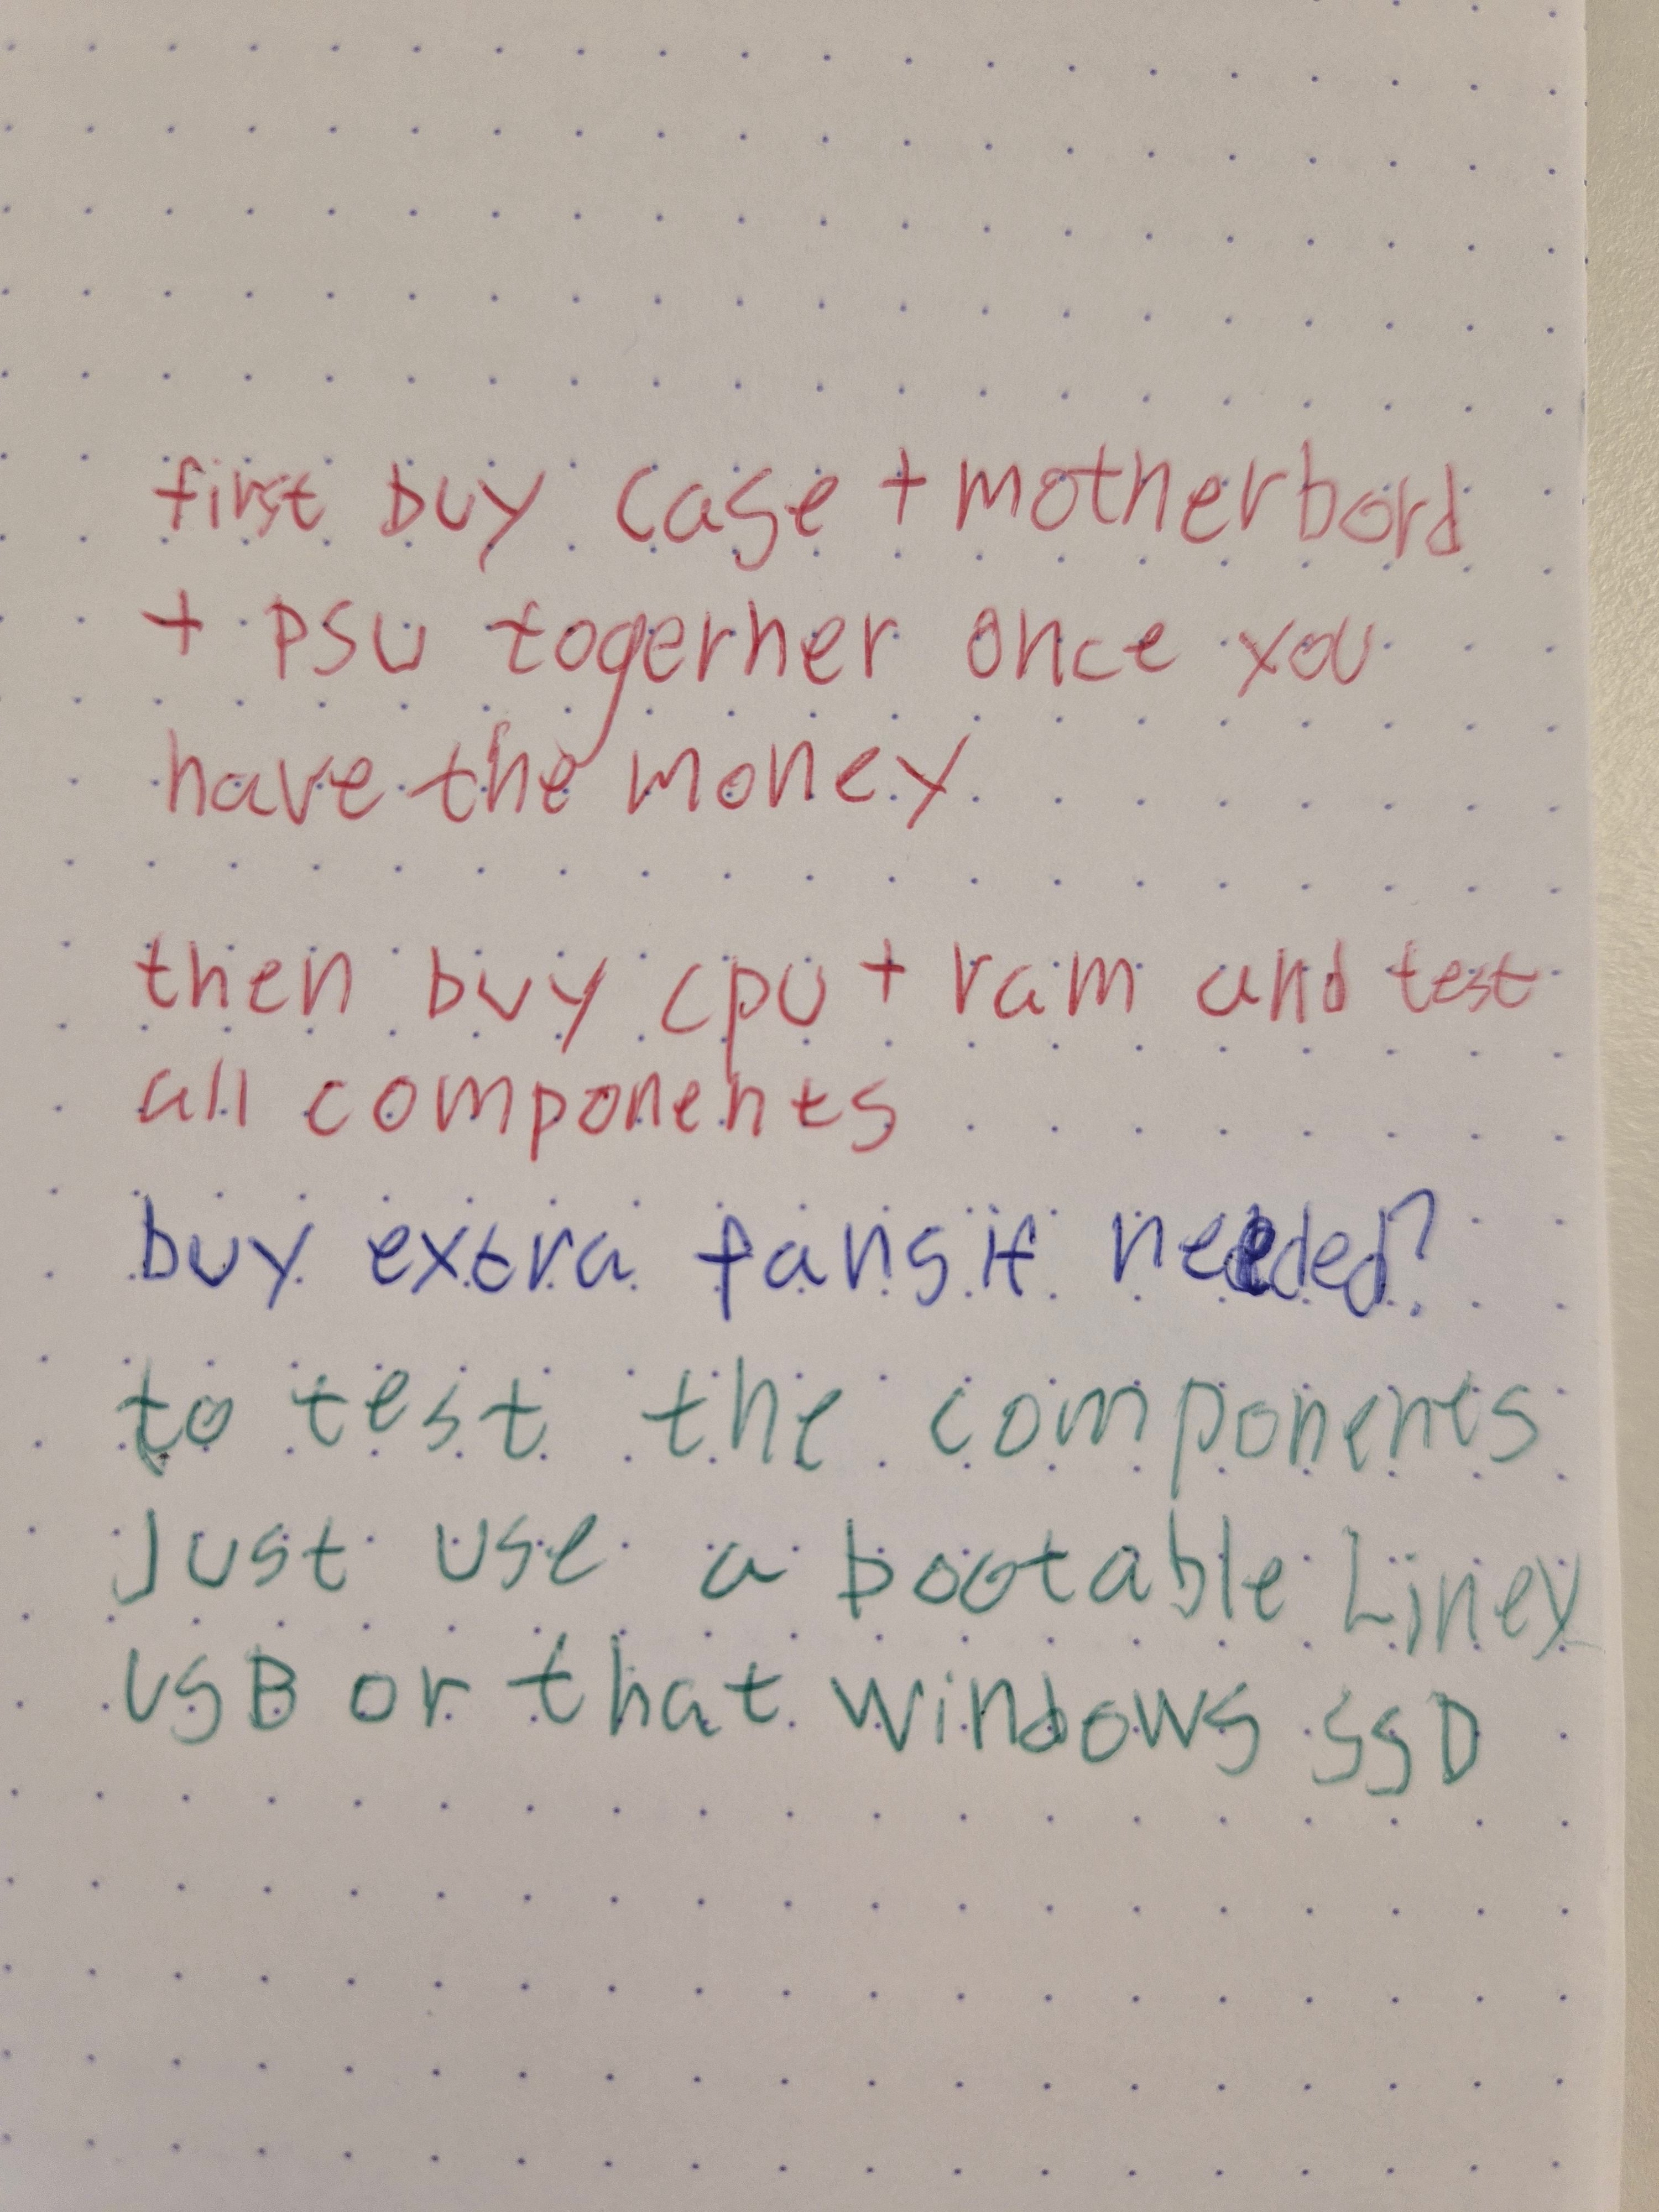 first buy case + motherbord
+ PSU togerher once you
have the money
then buy cpu + ram and test
all components
buy extra fans if needed?
to test the components
Just use a bootable Liney
USB or that windows SSD